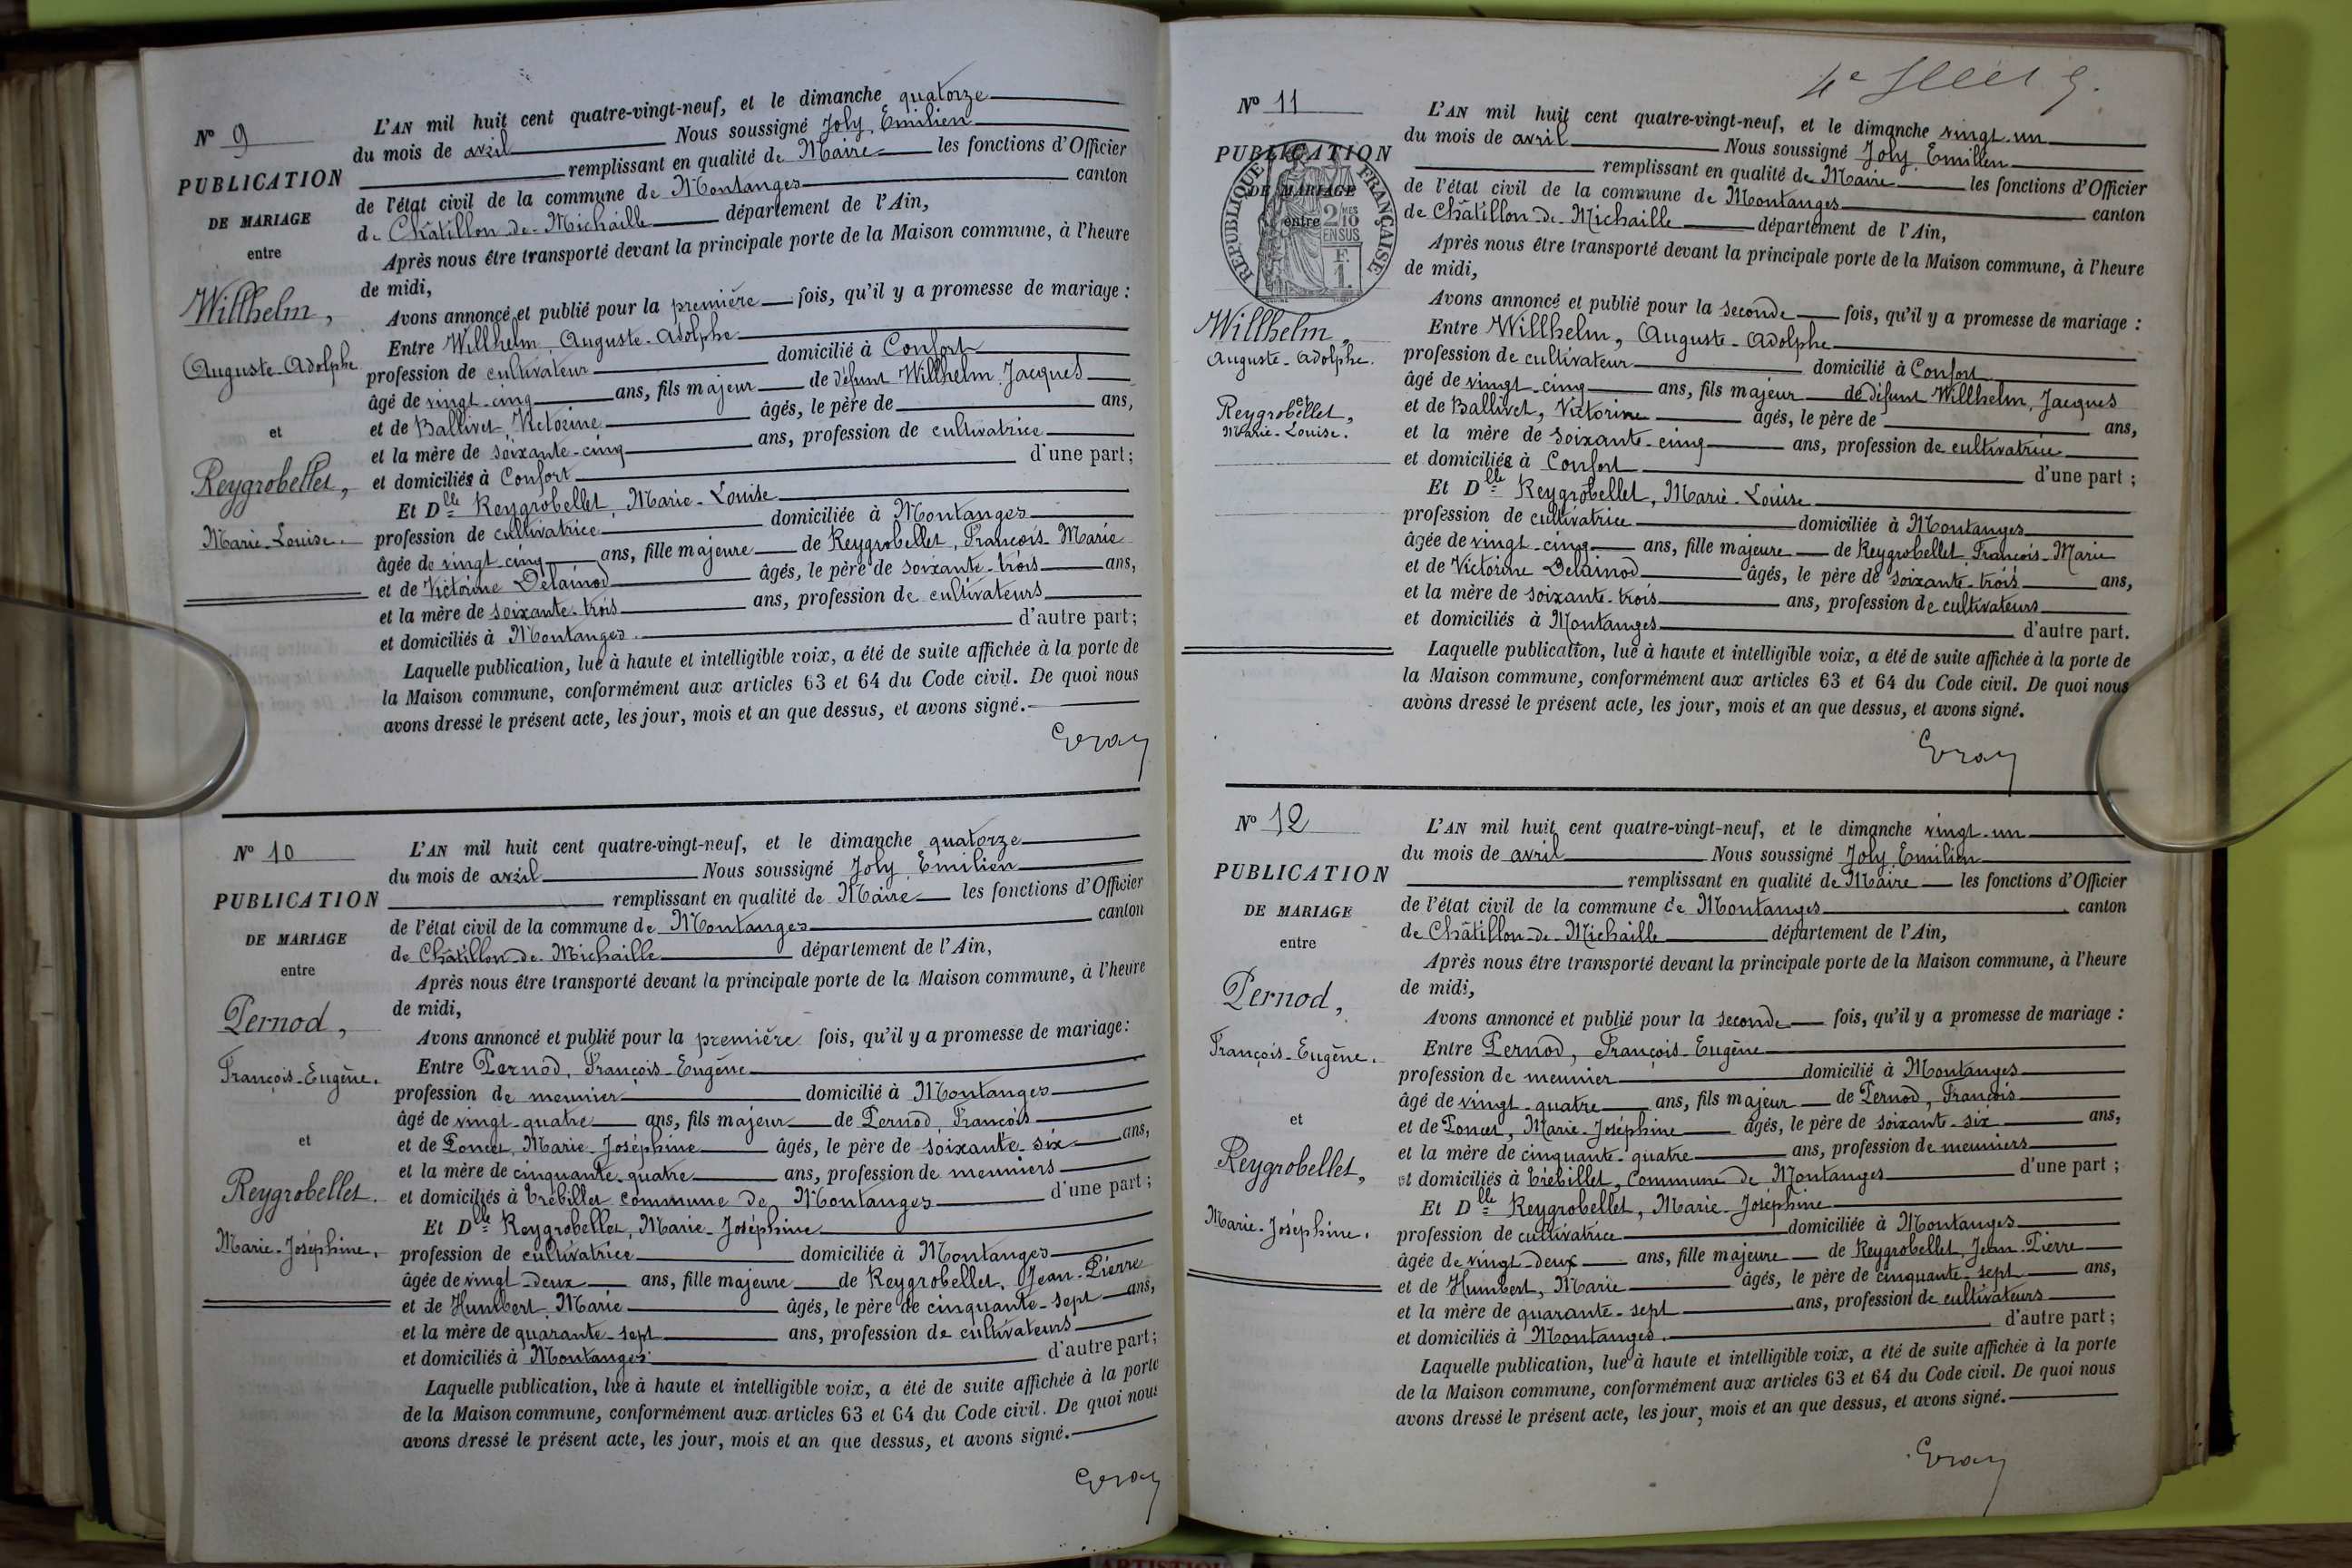 N° 9
PUBLICATION
DE MARIAGE
entre
Willhelm,
Auguste-Adolphe
et
Reygrobellet,
Marie-Louise.
L'AN mil huit cent quatre-vingt-neuf, et le dimanche quatorze
du mois de avril Nous soussigné Joly, Emilien
remplissant en qualité de Maire les fonctions d'Officier
de l'état civil de la commune de Montanges canton
de Châtillon-de-Michaille département de l'Ain,
Après nous être transporté devant la principale porte de la Maison commune, à l'heure
de midi,
Avons annoncé et publié pour la première fois, qu'il y a promesse de mariage :
Entre Willhelm, Auguste-Adolphe
profession de cultivateur domicilié à Confort
âgé de vingt-cinq ans, fils majeur de défunt Willhelm, Jacques
et de Ballivet, Victorine âgés, le père de ans,
et la mère de soixante-cinq ans, profession de cultivatrice
et domiciliés à Confort d'une part;
Et Dlle Reygrobellet, Marie-Louise
profession de cultivatrice domiciliée à Montanges
âgée de vingt-cinq ans, fille majeure de Reygrobellet, François-Marie
et de Victorine Delainod âgés, le père de soixante-trois ans,
et la mère de soixante-trois ans, profession de cultivateurs
et domiciliés à Montanges. d'autre part;
Laquelle publication, lue à haute et intelligible voix, a été de suite affichée à la porte de
la Maison commune, conformément aux articles 63 et 64 du Code civil. De quoi nous
avons dressé le présent acte, les jour, mois et an que dessus, et avons signé.
N° 10
PUBLICATION
DE MARIAGE
entre
Pernod,
François-Eugène.
et
Reygrobellet.
Marie-Joséphine.
L'AN mil huit cent quatre-vingt-neuf, et le dimanche quatorze
du mois de avril Nous soussigné Joly, Emilien
remplissant en qualité de Maire les fonctions d'Officier
de l'état civil de la commune de Montanges canton
de Châtillon-de-Michaille département de l'Ain,
Après nous être transporté devant la principale porte de la Maison commune, à l'heure
de midi,
Avons annoncé et publié pour la première fois, qu'il y a promesse de mariage:
Entre Pernod, François-Eugène
profession de meunier domicilié à Montanges
âgé de vingt-quatre ans, fils majeur de Pernod, François
et de Poncet, Marie-Joséphine âgés, le père de soixante-six ans,
et la mère de cinquante-quatre ans, profession de meuniers
et domiciliés à Trébillet commune de Montanges d'une part;
Et Dlle Reygrobellet, Marie-Joséphine
profession de cultivatrice domiciliée à Montanges
âgée de vingt-deux ans, fille majeure de Reygrobellet, Jean-Pierre
et de Humbert Marie âgés, le père de cinquante-sept ans,
et la mère de quarante-sept ans, profession de cultivateurs
et domiciliés à Montanges. d'autre part;
Laquelle publication, lue à haute et intelligible voix, a été de suite affichée à la porte
de la Maison commune, conformément aux articles 63 et 64 du Code civil. De quoi nous
avons dressé le présent acte, les jour, mois et an que dessus, et avons signé.
N° 11
PUBLICATION
DE MARIAGE
entre
RÉPUBLIQUE FRANÇAISE
2/10 MES
EN SUS
F.
1.
Willhelm,
Auguste-Adolphe.
et
Reygrobellet,
Marie-Louise.
L'AN mil huit cent quatre-vingt-neuf, et le dimanche vingt-un
du mois de avril Nous soussigné Joly Emilien
remplissant en qualité de Maire les fonctions d'Officier
de l'état civil de la commune de Montanges canton
de Châtillon-de-Michaille département de l'Ain,
Après nous être transporté devant la principale porte de la Maison commune, à l'heure
de midi,
Avons annoncé et publié pour la seconde fois, qu'il y a promesse de mariage :
Entre Willhelm, Auguste-Adolphe
profession de cultivateur domicilié à Confort
âgé de vingt-cinq ans, fils majeur de défunt Willhelm, Jacques
et de Ballivet, Victorine âgés, le père de ans,
et la mère de soixante-cinq ans, profession de cultivatrice
et domiciliés à Confort d'une part ;
Et Dlle Reygrobellet, Marie-Louise
profession de cultivatrice domiciliée à Montanges
âgée de vingt-cinq ans, fille majeure de Reygrobellet, François-Marie
et de Victorine Delainod âgés, le père de soixante-trois ans,
et la mère de soixante-trois ans, profession de cultivateurs
et domiciliés à Montanges d'autre part.
Laquelle publication, lue à haute et intelligible voix, a été de suite affichée à la porte de
la Maison commune, conformément aux articles 63 et 64 du Code civil. De quoi nous
avons dressé le présent acte, les jour, mois et an que dessus, et avons signé.
N° 12
PUBLICATION
DE MARIAGE
entre
Pernod,
François-Eugène.
et
Reygrobellet,
Marie-Joséphine.
L'AN mil huit cent quatre-vingt-neuf, et le dimanche vingt-un
du mois de avril Nous soussigné Joly, Emilien
remplissant en qualité de Maire les fonctions d'Officier
de l'état civil de la commune de Montanges canton
de Châtillon-de-Michaille département de l'Ain,
Après nous être transporté devant la principale porte de la Maison commune, à l'heure
de midi,
Avons annoncé et publié pour la seconde fois, qu'il y a promesse de mariage :
Entre Pernod, François-Eugène
profession de meunier domicilié à Montanges
âgé de vingt-quatre ans, fils majeur de Pernod, François
et de Poncet, Marie-Joséphine âgés, le père de soixante-six ans,
et la mère de cinquante-quatre ans, profession de meuniers
et domiciliés à Trébillet, Commune de Montanges d'une part ;
Et Dlle Reygrobellet, Marie-Joséphine
profession de cultivatrice domiciliée à Montanges
âgée de vingt-deux ans, fille majeure de Reygrobellet, Jean-Pierre
et de Humbert, Marie âgés, le père de cinquante-sept ans,
et la mère de quarante-sept ans, profession de cultivateurs
et domiciliés à Montanges. d'autre part ;
Laquelle publication, lue à haute et intelligible voix, a été de suite affichée à la porte
de la Maison commune, conformément aux articles 63 et 64 du Code civil. De quoi nous
avons dressé le présent acte, les jour, mois et an que dessus, et avons signé.